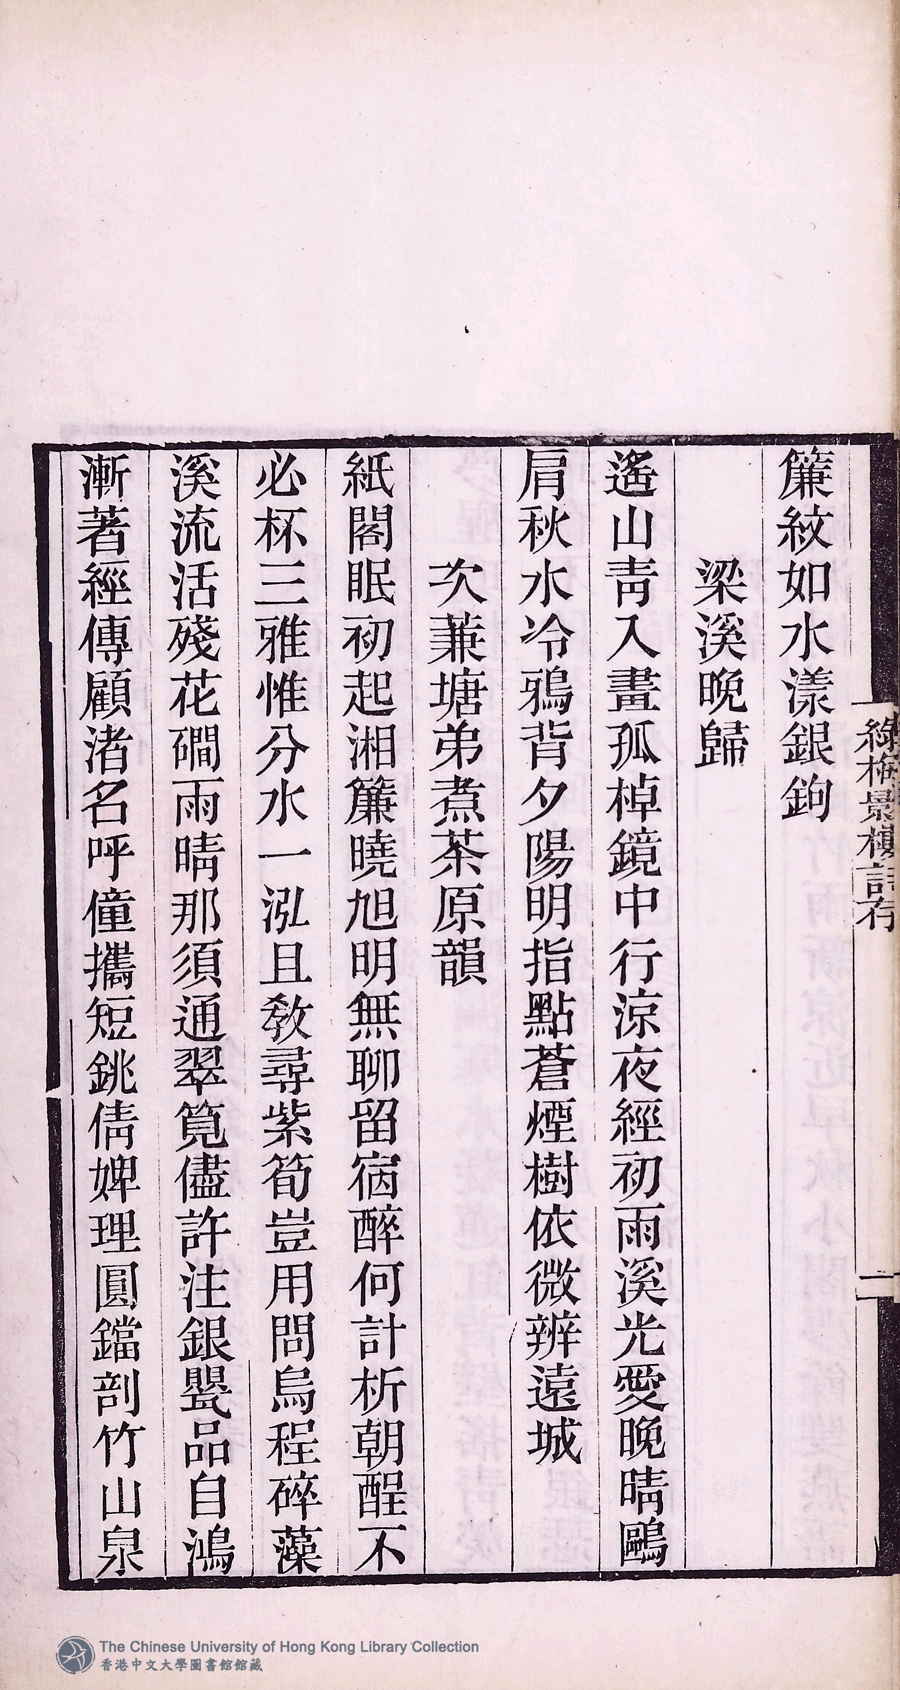 簾紋如水漾銀鉤
梁溪晚歸
遙山靑入畫孤棹鏡中行涼夜經初雨溪光愛晚晴鷗
肩秋水冷鴉背夕陽明指點蒼煙樹依微辨遠城
次蒹塘弟煮茶原韻
紙閣眠初起湘簾曉旭明無聊留宿醉何計析朝酲不
必杯三雅惟分水一泓且敎尋紫筍豈用問烏程碎藻
溪流活殘花磵雨晴那須通翠筧儘許注銀甖品自鴻
漸著經傳顧渚名呼僮攜短銚倩婢理圓鐺剖竹山泉
綠梅景樓詩存
The Chinese University of Hong Kong Library Collection
香港中文大學圖書館館藏